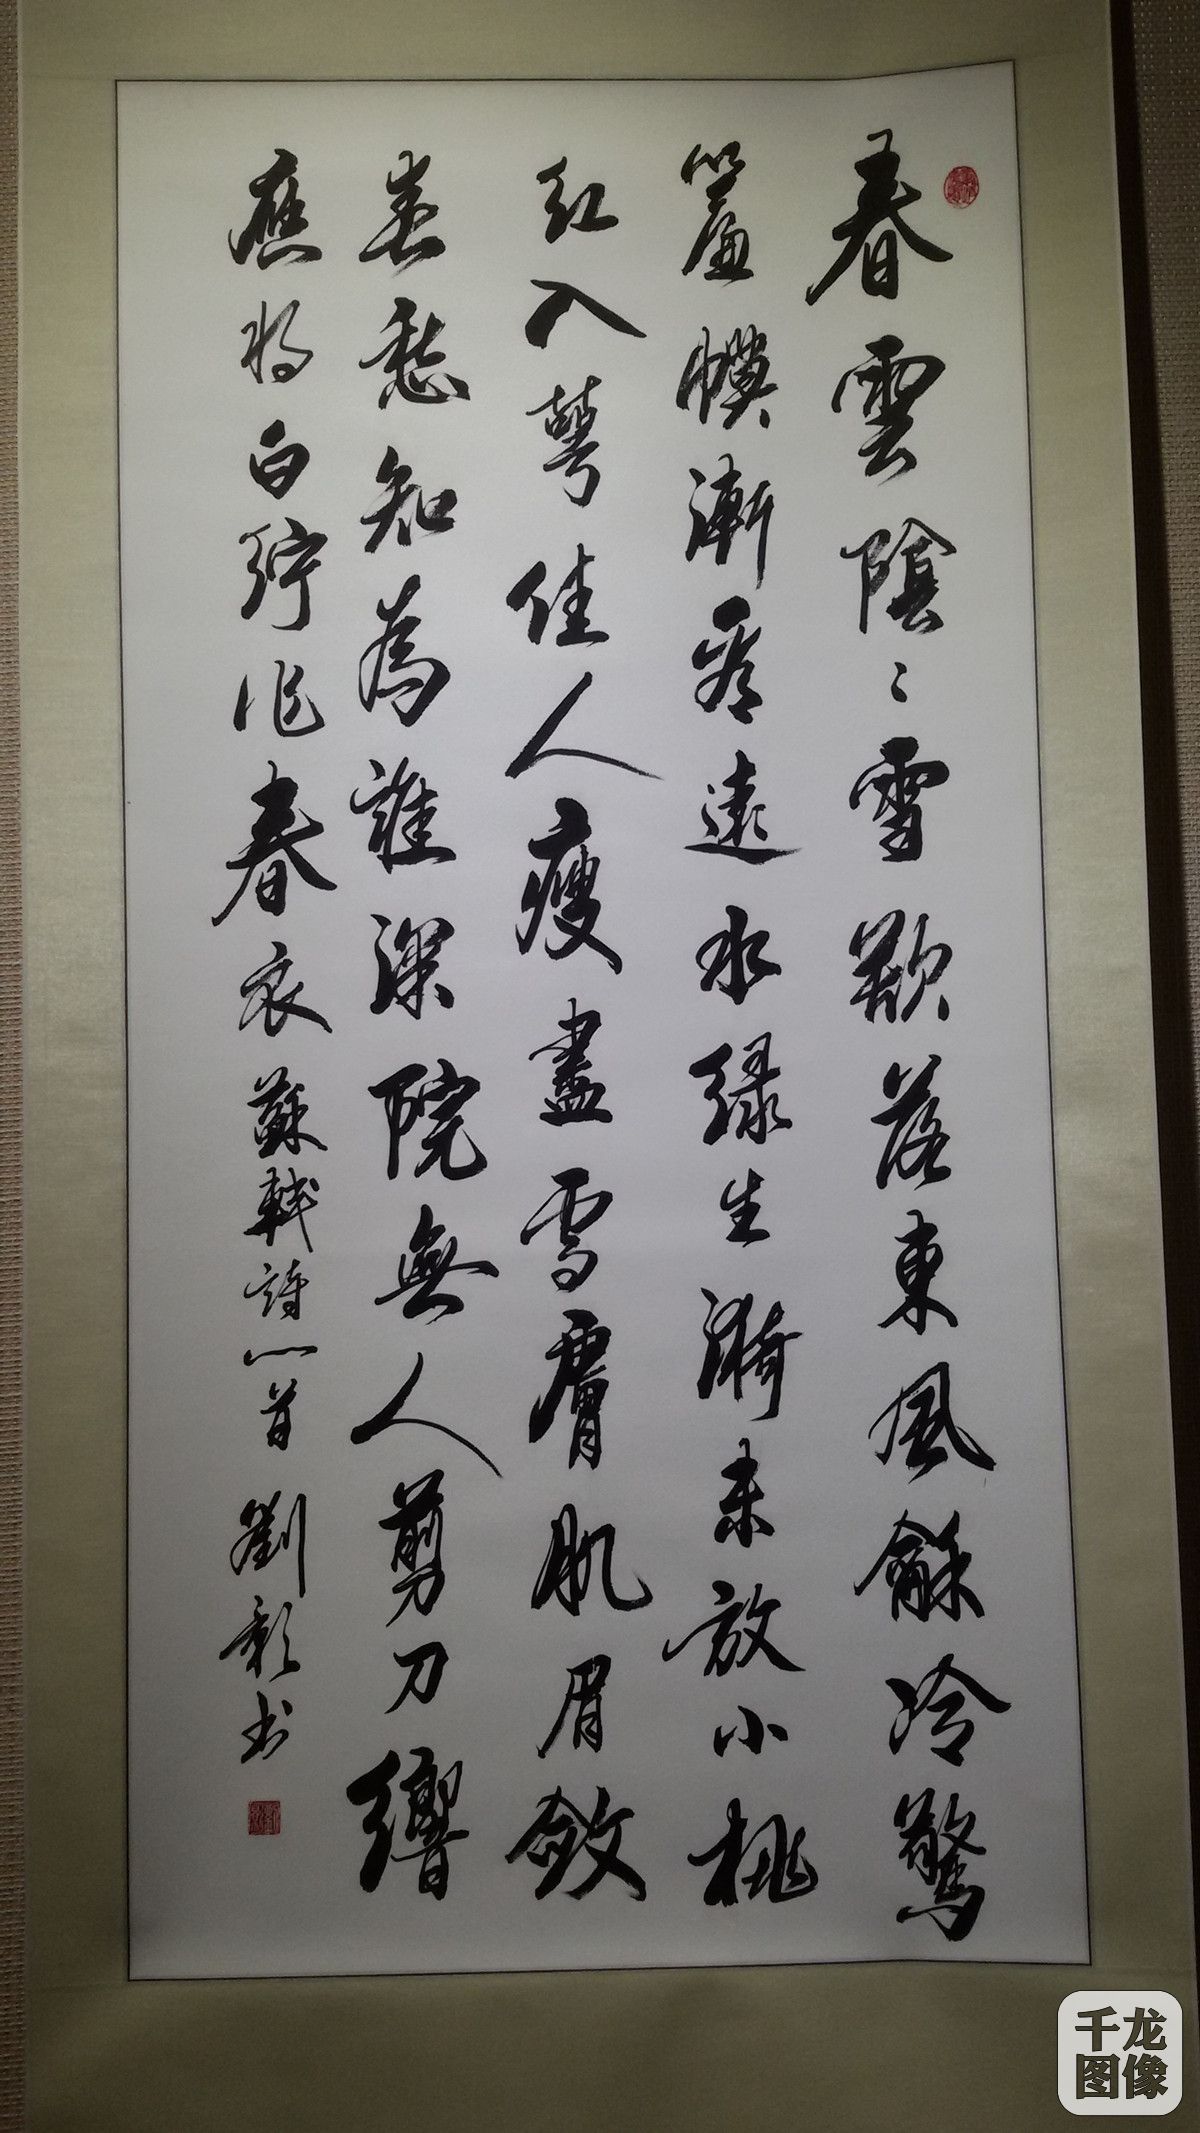 春雲陰〻雪欲落東風龢冷驚
簾幙漸看遠水綠生漪未放小桃
紅入萼佳人瘦盡雪膚肌眉斂
春愁知為誰深院無人剪刀響
應將白紵作春衣 蘇軾詩一首 劉彰书
千龙
图像